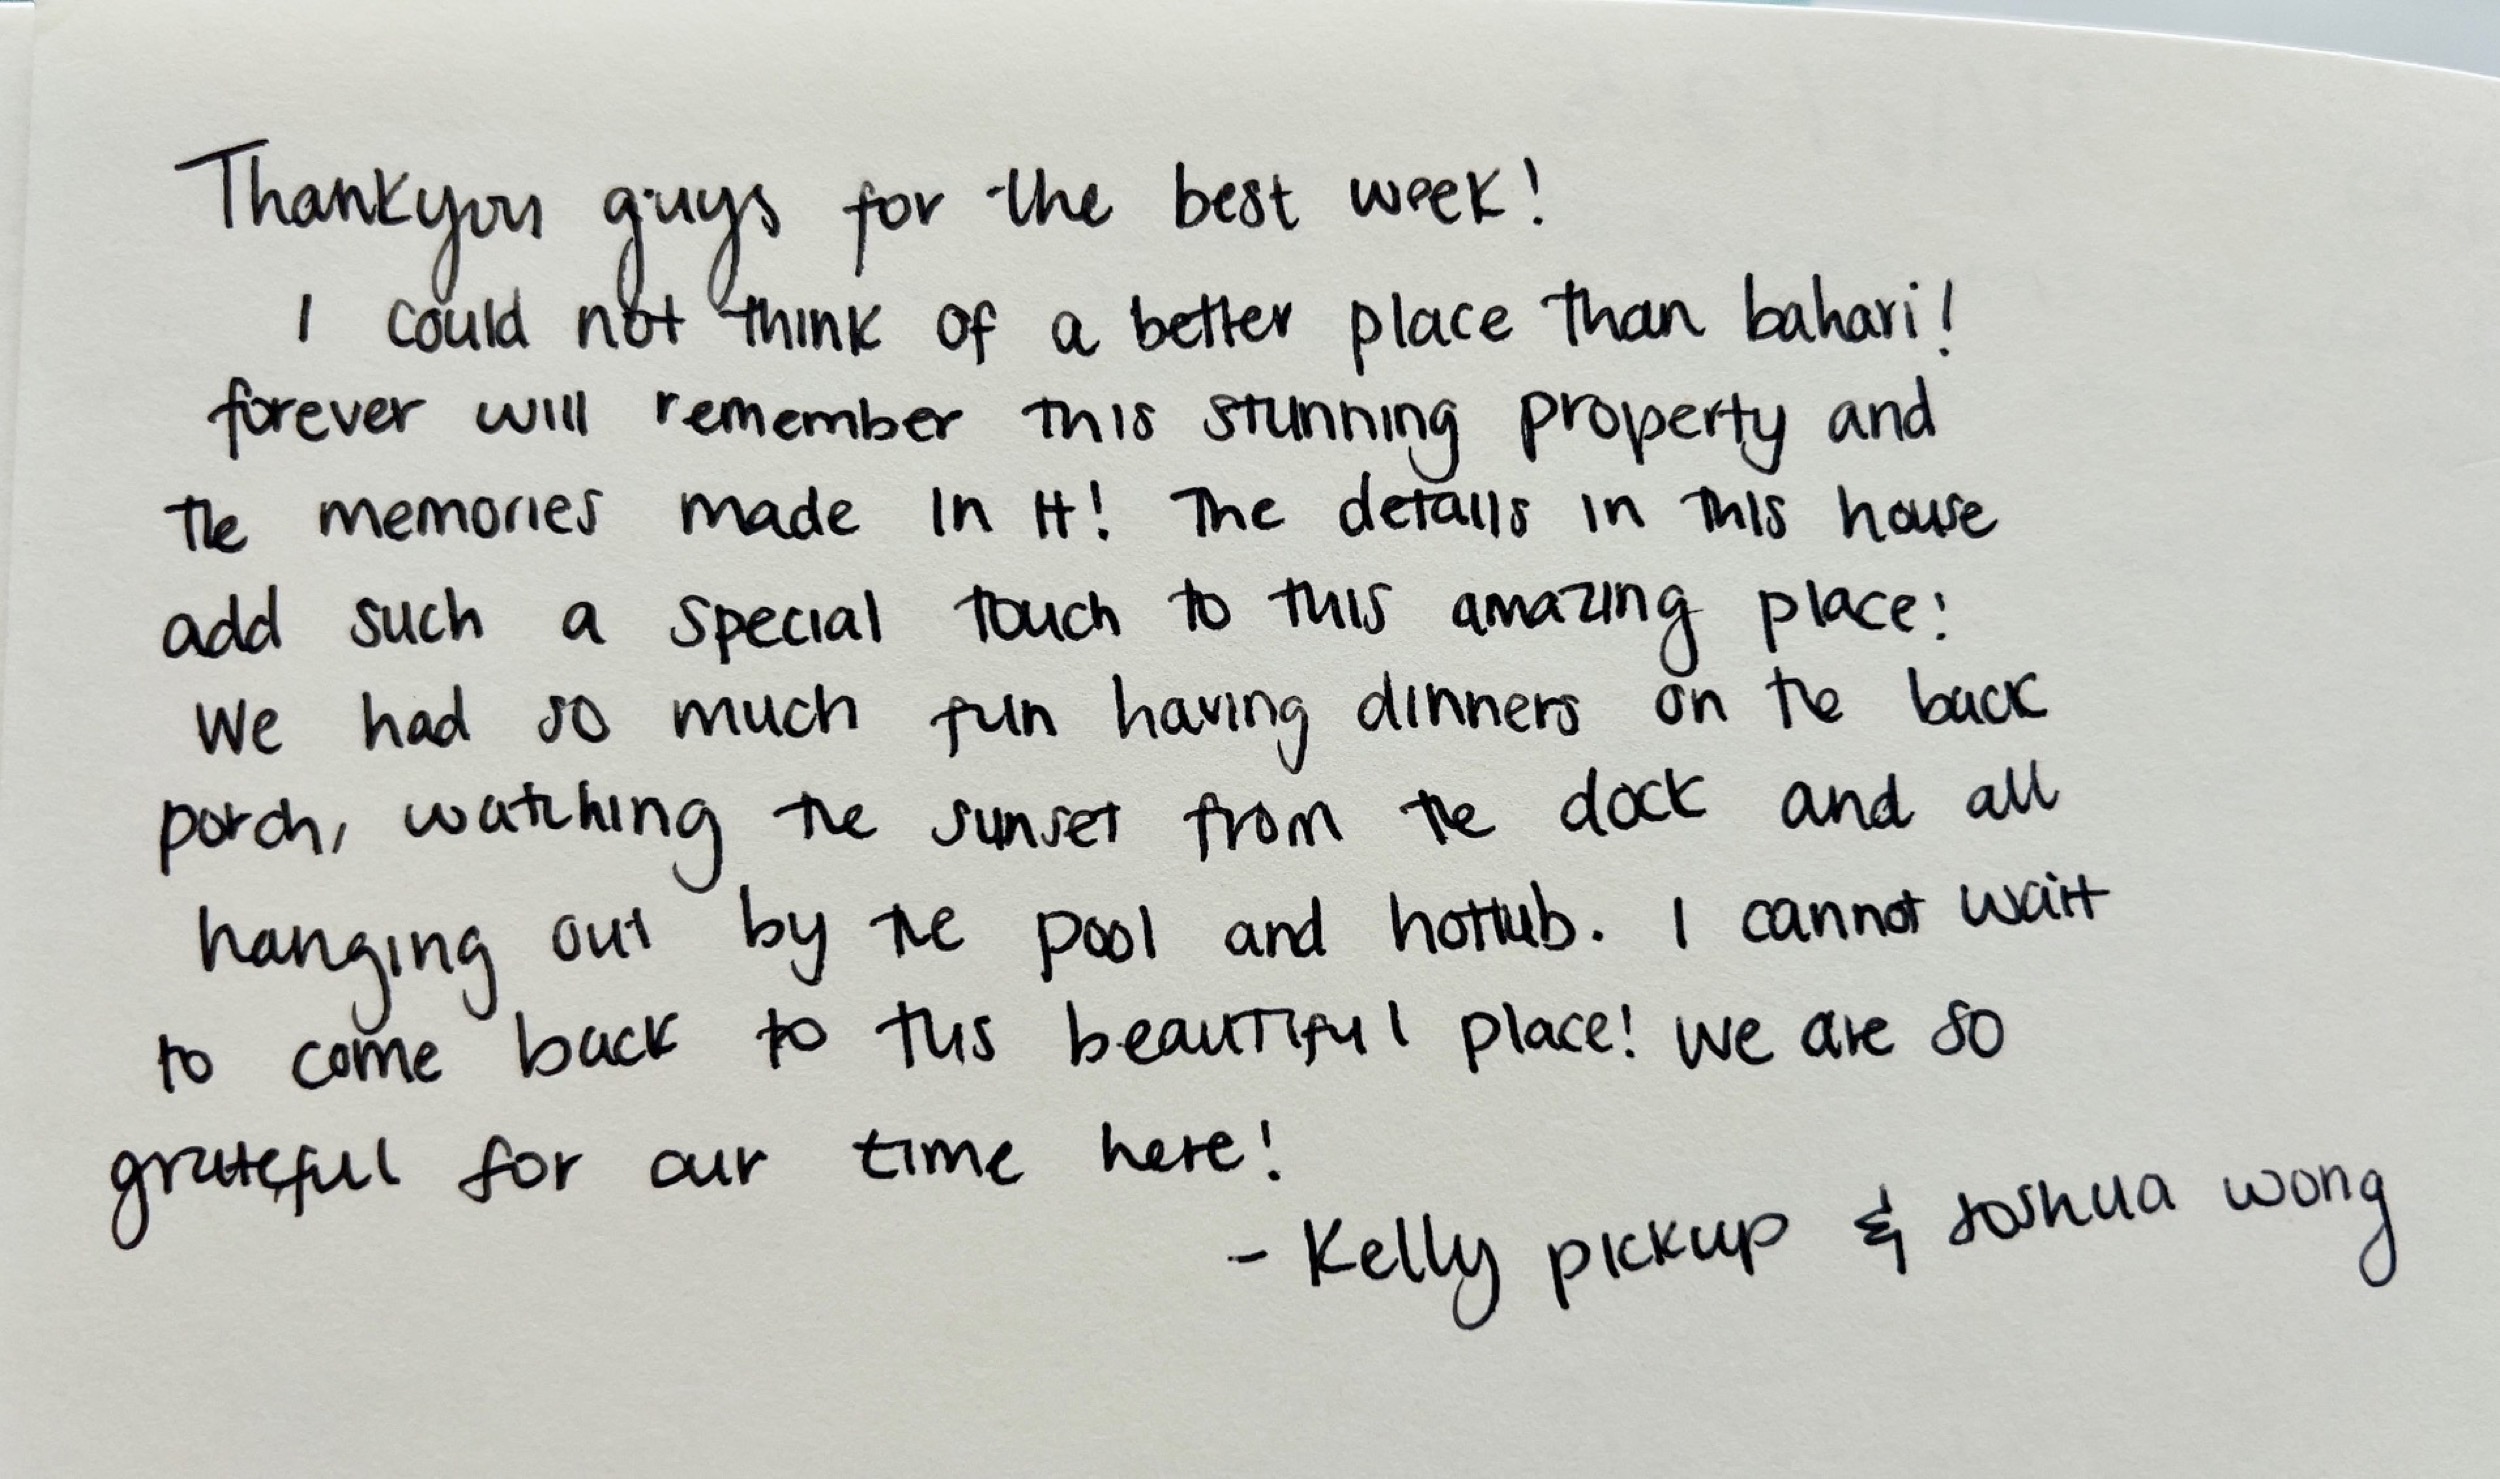 Thankyou guys for the best week!
I could not think of a better place than bahari!
forever will remember this stunning property and
the memories made in it! The details in this house
add such a special touch to this amazing place!
We had so much fun having dinners on the back
porch, watching the sunset from the dock and all
hanging out by the pool and hottub. I cannot wait
to come back to this beautiful place! We are so
grateful for our time here!
- Kelly pickup & Joshua wong